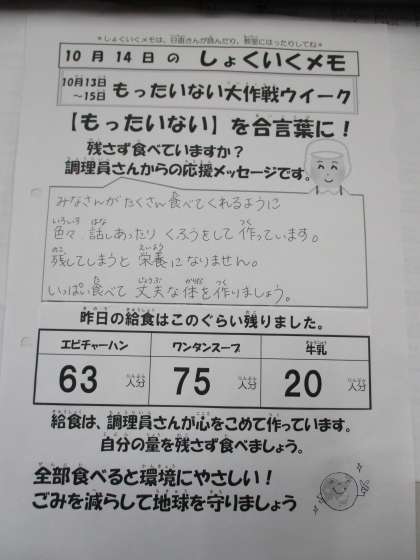 ＊しょくいくメモは、日直さんが読んだり、教室にはったりしてね＊
10月14日の しょくいくメモ
10月13日～15日 もったいない大作戦ウイーク
【もったいない】を合言葉に！
残さず食べていますか？
調理員さんからの応援メッセージです。
みなさんがたくさん食べてくれるように
色々、話しあったり くろうをして 作っています。
残してしまうと 栄養に なりません。
いっぱい食べて 丈夫な体を作りましょう。
昨日の給食はこのぐらい残りました。
エビチャーハン ワンタンスープ 牛乳
63人分 75人分 20人分
給食は、調理員さんが心をこめて作っています。
自分の量を残さず食べましょう。
全部食べると環境にやさしい！
ごみを減らして地球を守りましょう